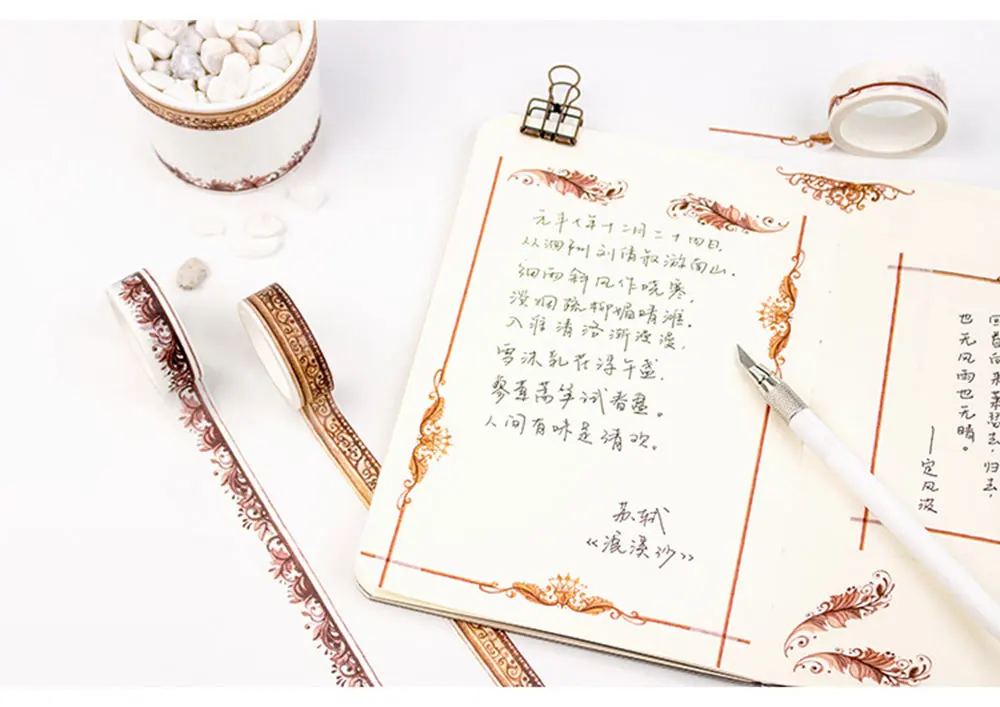 元丰七年十二月二十四日,
从泗州刘倩叔游南山.
细雨斜风作晓寒,
淡烟疏柳媚晴滩.
入淮清洛渐漫漫,
雪沫乳花浮午盏,
蓼茸蒿笋试春盘。
人间有味是清欢。
苏轼
《浣溪沙》
也无风雨也无晴。
——定风波